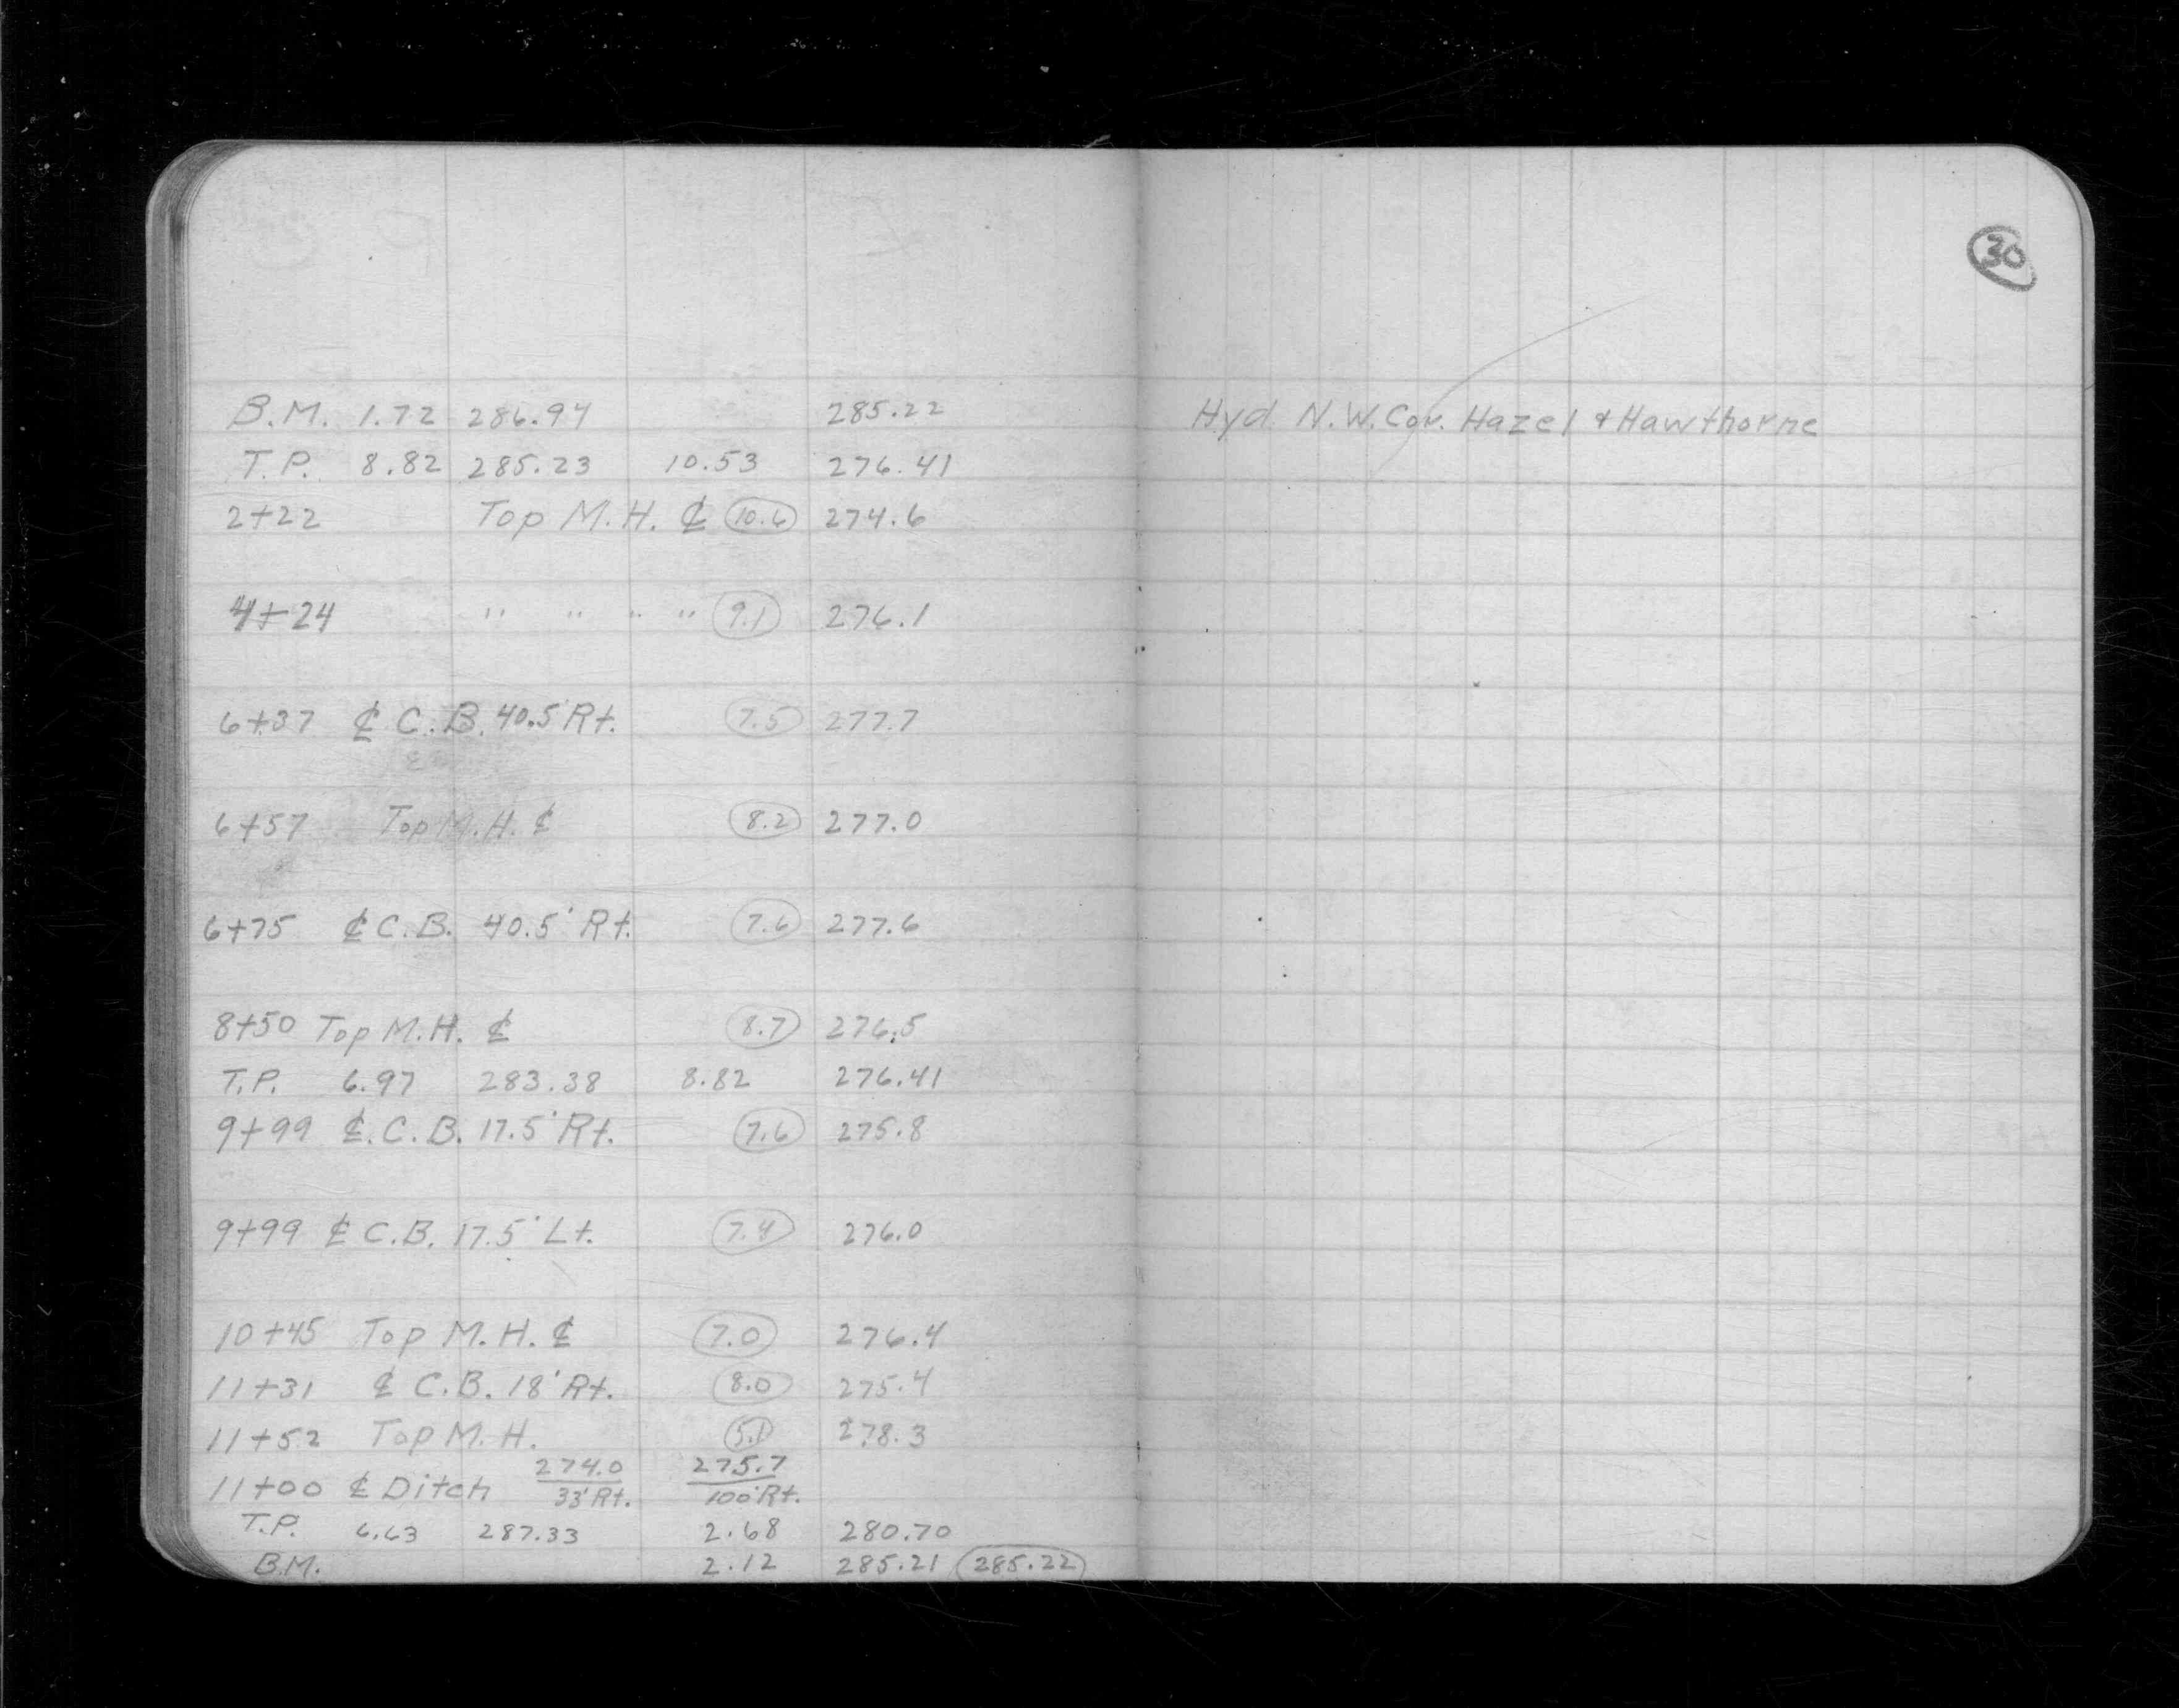 30
B.M. 1.72 286.94 285.22 Hyd. N.W. Cor. Hazel & Hawthorne
T.P. 8.82 285.23 10.53 276.41
2+22 Top M.H. ℄ 10.6 274.6
4+24 " " " " 9.1 276.1
6+37 ℄ C.B. 40.5' Rt. 7.5 277.7
6+57 Top M.H. ℄ 8.2 277.0
6+75 ℄ C.B. 40.5' Rt. 7.6 277.6
8+50 Top M.H. ℄ 8.7 276.5
T.P. 6.97 283.38 8.82 276.41
9+99 ℄ C.B. 17.5' Rt. 7.6 275.8
9+99 ℄ C.B. 17.5' Lt. 7.4 276.0
10+45 Top M.H. ℄ 7.0 276.4
11+31 ℄ C.B. 18' Rt. 8.0 275.4
11+52 Top M.H. 5.1 278.3
11+00 ℄ Ditch 274.0/33' Rt. 275.7/100' Rt.
T.P. 6.63 287.33 2.68 280.70
B.M. 2.12 285.21 285.22